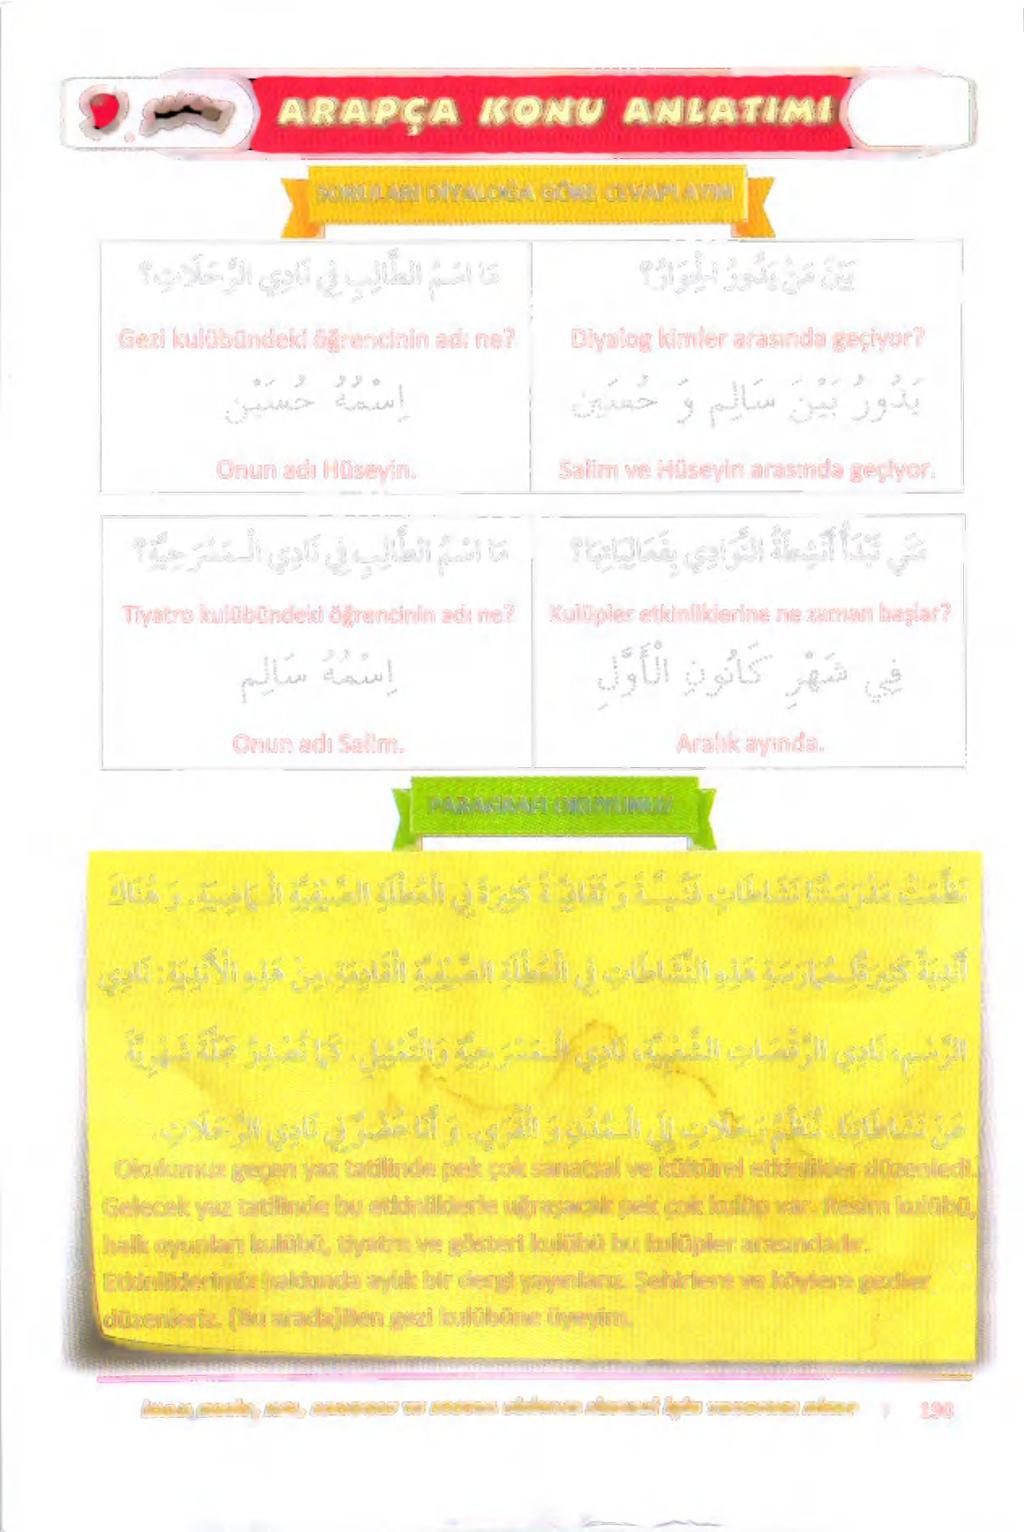 ARAPÇA KONU ANLATIMI
SORULARI DİYALOĞA GÖRE CEVAPLAYIN
بَيْنَ مَنْ يَدُورُ الْحِوَارُ؟
Diyalog kimler arasında geçiyor?
يَدُورُ بَيْنَ سَالِم وَ حُسَيْن
Salim ve Hüseyin arasında geçiyor.
مَا اسْمُ الطَّالِبِ فِي نَادِي الرَّحَلَاتِ؟
Gezi kulübündeki öğrencinin adı ne?
اِسْمُهُ حُسَيْن
Onun adı Hüseyin.
مَتَي تَبْدَأُ أَنْشِطَةُ النَّوَادِي بِفَعَالِيَاتِهَا؟
Kulüpler etkinliklerine ne zaman başlar?
فِي شَهْرِ كَانُونِ الْأَوَّلِ
Aralık ayında.
مَا اسْمُ الطَّالِبِ فِي نَادِي الْمَسْرَحِيَّةِ؟
Tiyatro kulübündeki öğrencinin adı ne?
اِسْمُهُ سَالِم
Onun adı Salim.
PARAGRAFI OKUYUNUZ
نَظَّمَتْ مَدْرَسَتُنَا نَشَاطَاتٍ فَنِّيَّةً وَ ثَقَافِيَّةً كَثِيرَةً فِي الْعُطْلَةِ الصَّيْفِيَّةِ الْمَاضِيَةِ. وَ هُنَاكَ
أَنْدِيَةٌ كَثِيرَةٌ لِمُمَارَسَةِ هَذِهِ النَّشَاطَاتِ فِي الْعُطْلَةِ الصَّيْفِيَّةِ الْقَادِمَةِ. مِنْ هَذِهِ الْأَنْدِيَةِ: نَادِي
الرَّسْمِ، نَادِي الرَّقْصَاتِ الشَّعْبِيَّةِ، نَادِي الْمَسْرَحِيَّةِ وَالتَّمْثِيلِ. كَمَا نُصْدِرُ مَجَلَّةً شَهْرِيَّةً
عَنْ نَشَاطَاتِنَا. نُنَظِّمُ رَحَلَاتٍ إِلَي الْمُدُنِ وَ الْقُرَي. وَ أَنَا عُضْوٌ فِي نَادِي الرَّحَلَاتِ.
Okulumuz geçen yaz tatilinde pek çok sanatsal ve kültürel etkinlikler düzenledi.
Gelecek yaz tatilinde bu etkinliklerle uğraşacak pek çok kulüp var. Resim kulübü,
halk oyunları kulübü, tiyatro ve gösteri kulübü bu kulüpler arasındadır.
Etkinliklerimiz hakkında aylık bir dergi yayınlarız. Şehirlere ve köylere geziler
düzenleriz. (Bu arada)Ben gezi kulübüne üyeyim.
190